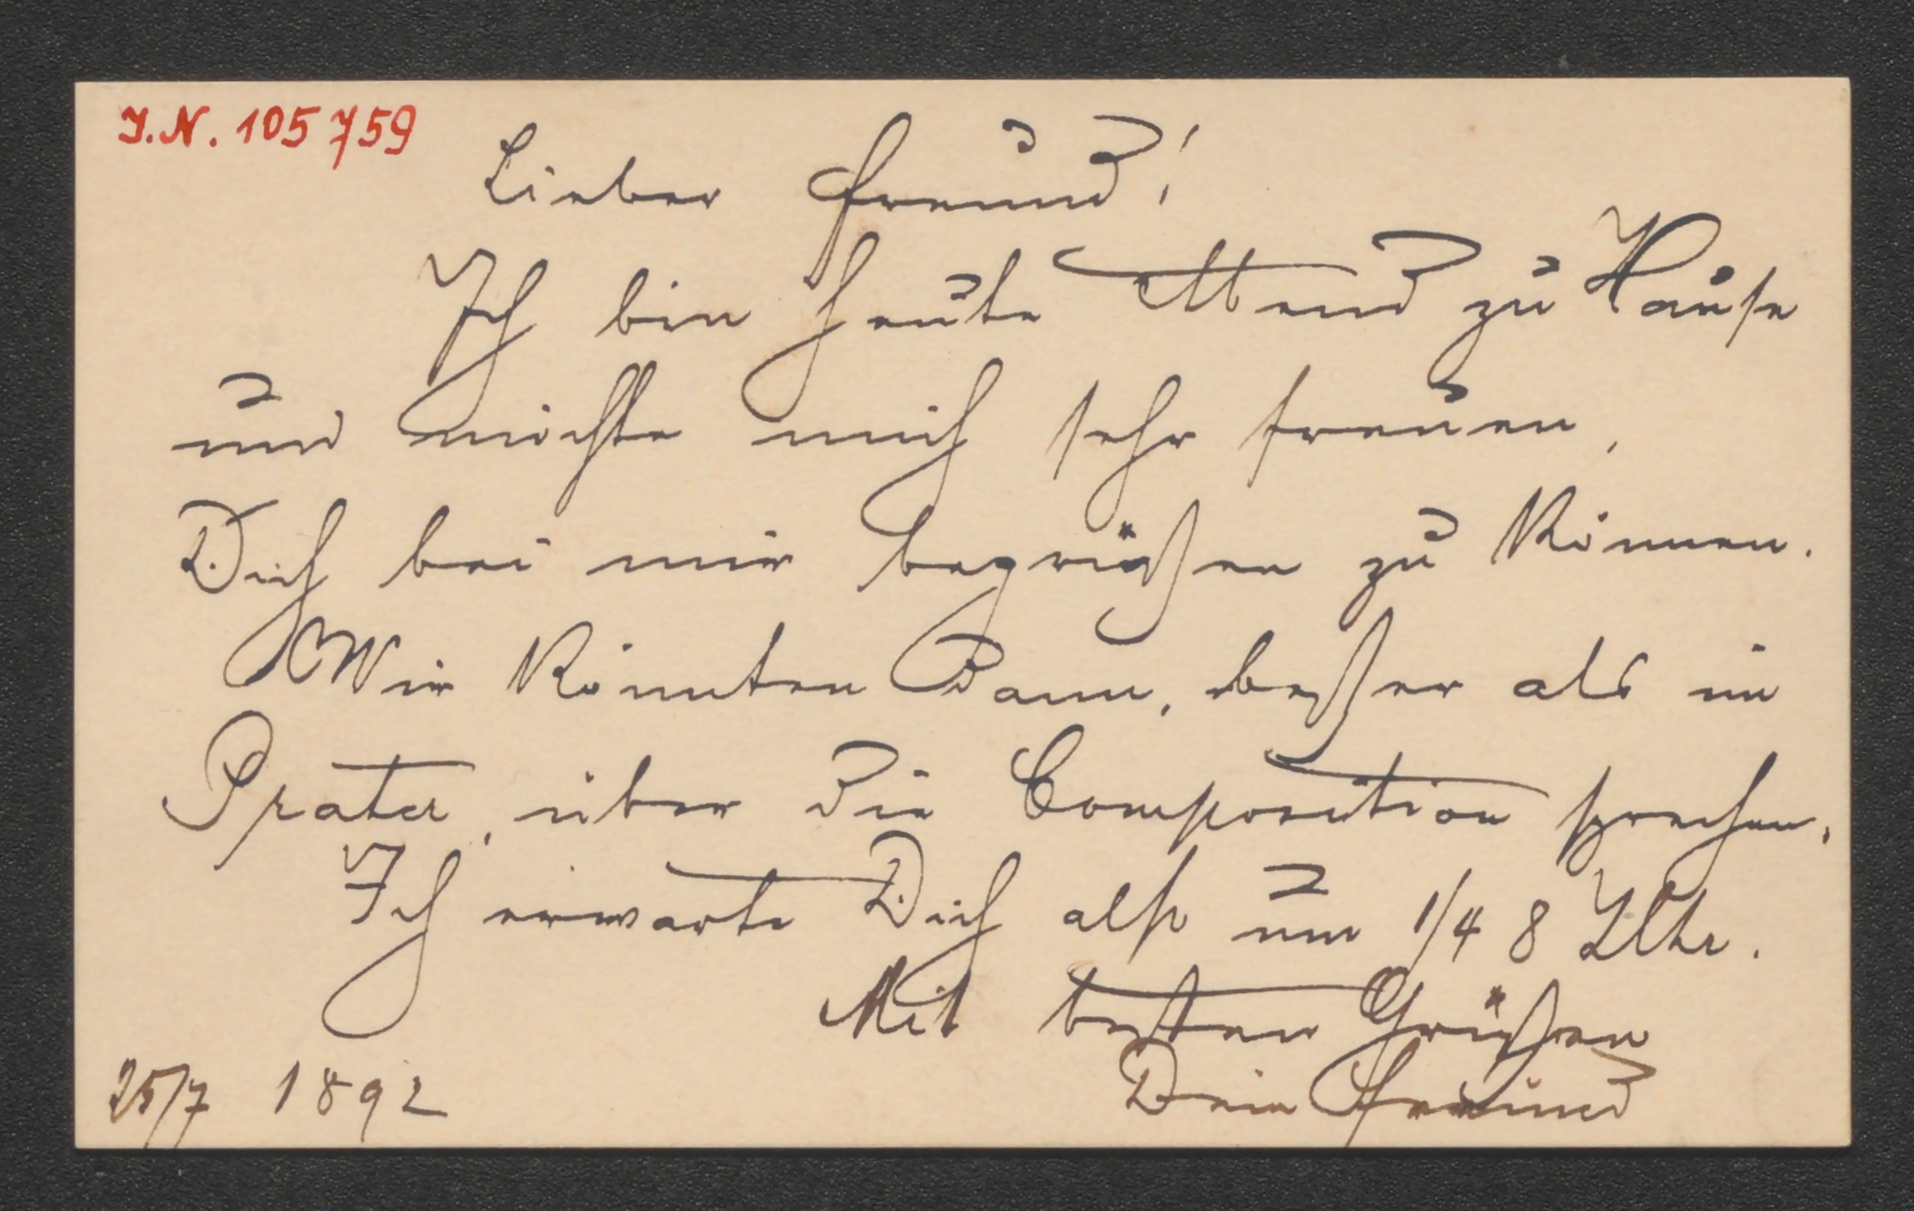 I.N. 105759
Lieber Freund!
Ich bin heute Abend zu Hause
und möchte mich sehr freuen,
Dich bei mir begrüßen zu können.
Wir könnten dann, beßer als im
Prater, über die Composition sprechen.
Ich erwarte Dich also um 1/4 8 Uhr.
Mit besten Grüßen
Dein Freund
25/7 1892